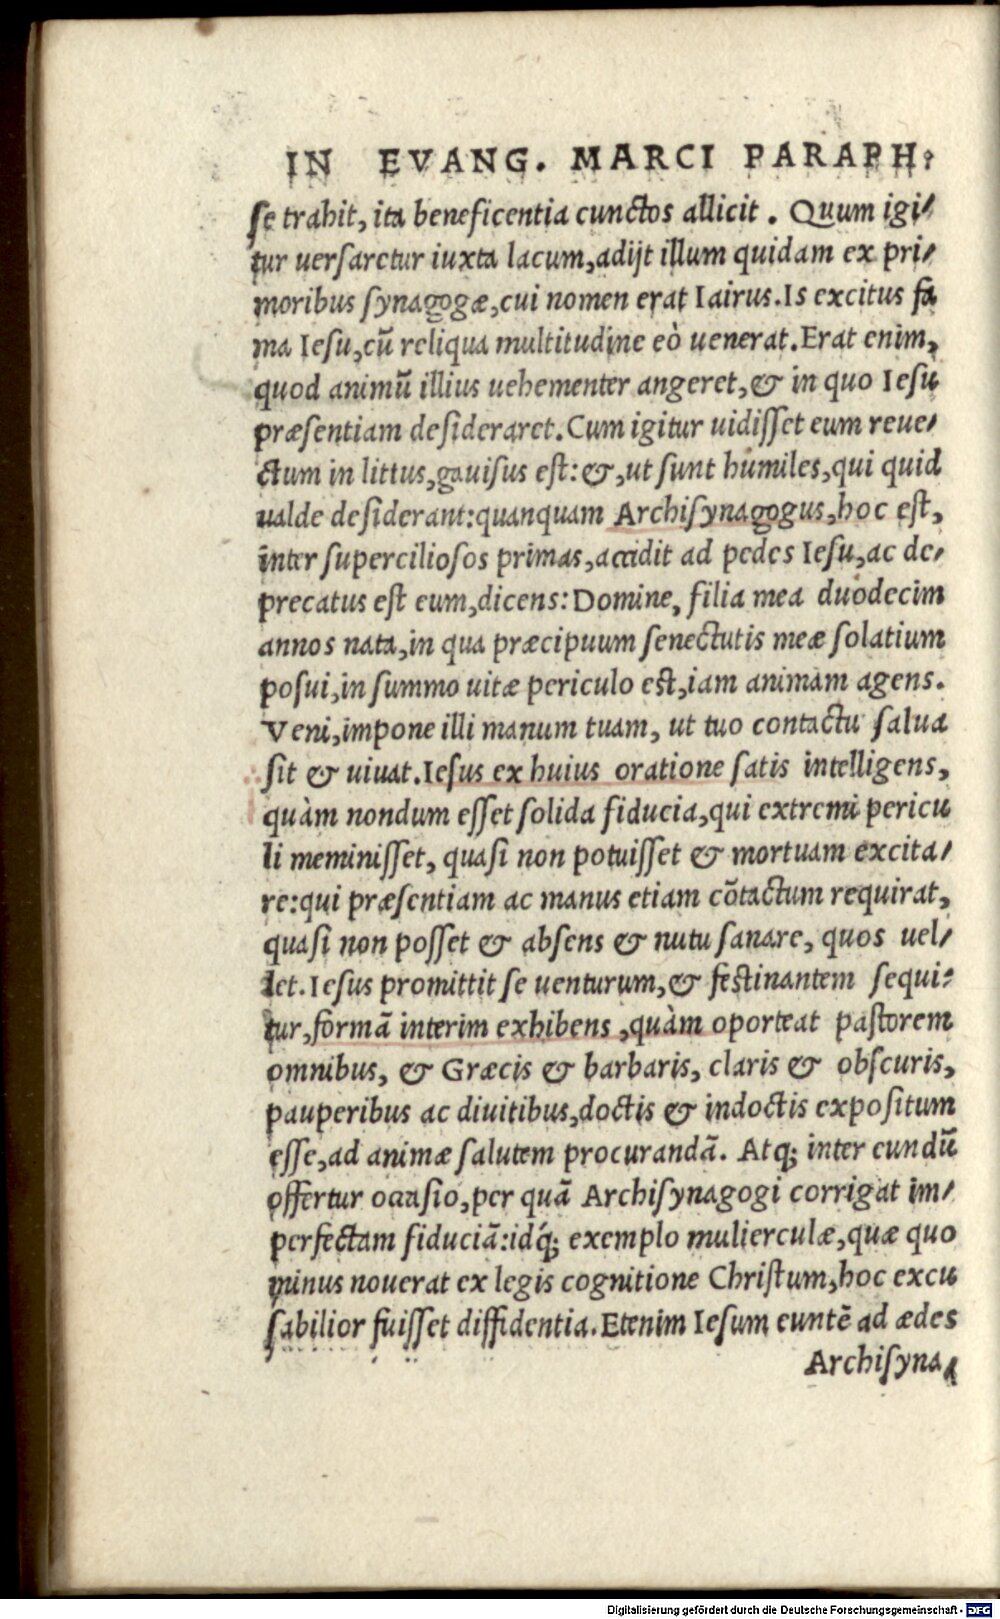 IN EVANG. MARCI PARAPH:
se trahit, ita beneficentia cunctos allicit. Quum igi/
tur uersaretur iuxta lacum, adijt illum quidam ex pri/
moribus synagogæ, cui nomen erat Iairus. Is excitus fa
ma Iesu, cū reliqua multitudine eò uenerat. Erat enim,
quod animū illius uehementer angeret, & in quo Iesu
præsentiam desideraret. Cum igitur uidisset eum reue/
ctum in littus, gauisus est: &, ut sunt humiles, qui quid
ualde desiderant: quanquam Archisynagogus, hoc est,
inter superciliosos primas, accidit ad pedes Iesu, ac de/
precatus est eum, dicens: Domine, filia mea duodecim
annos nata, in qua præcipuum senectutis meæ solatium
posui, in summo uitæ periculo est, iam animam agens.
Veni, impone illi manum tuam, ut tuo contactu salua
sit & uiuat. Iesus ex huius oratione satis intelligens,
quàm nondum esset solida fiducia, qui extremi pericu
li meminisset, quasi non potuisset & mortuam excita/
re: qui præsentiam ac manus etiam cōtactum requirat,
quasi non posset & absens & nutu sanare, quos uel/
let. Iesus promittit se uenturum, & festinantem sequi/
tur, formā interim exhibens, quàm oporteat pastorem
omnibus, & Græcis & barbaris, claris & obscuris,
pauperibus ac diuitibus, doctis & indoctis expositum
esse, ad animæ salutem procurandā. Atq; inter eundū
offertur occasio, per quā Archisynagogi corrigat im/
perfectam fiduciā: idq́; exemplo mulierculæ, quæ quo
minus nouerat ex legis cognitione Christum, hoc excu
sabilior fuisset diffidentia. Etenim Iesum euntē ad ædes
Archisyna/
Digitalisierung gefördert durch die Deutsche Forschungsgemeinschaft - DFG